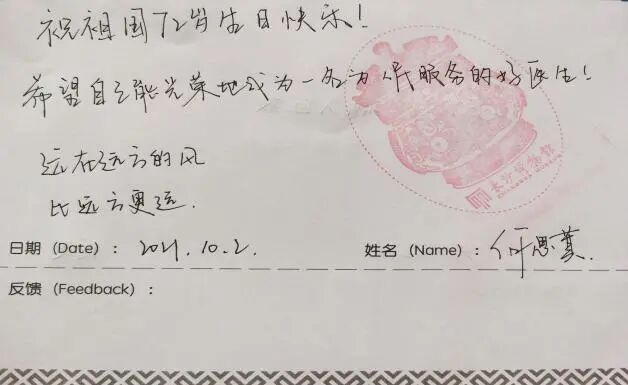 祝祖国72岁生日快乐！
希望自己能光荣地成为一名为人民服务的好医生！
远在远方的风
比远方更远.
长沙博物馆
日期（Date）： 2021.10.2.
姓名（Name）： 何思
反馈（Feedback）：